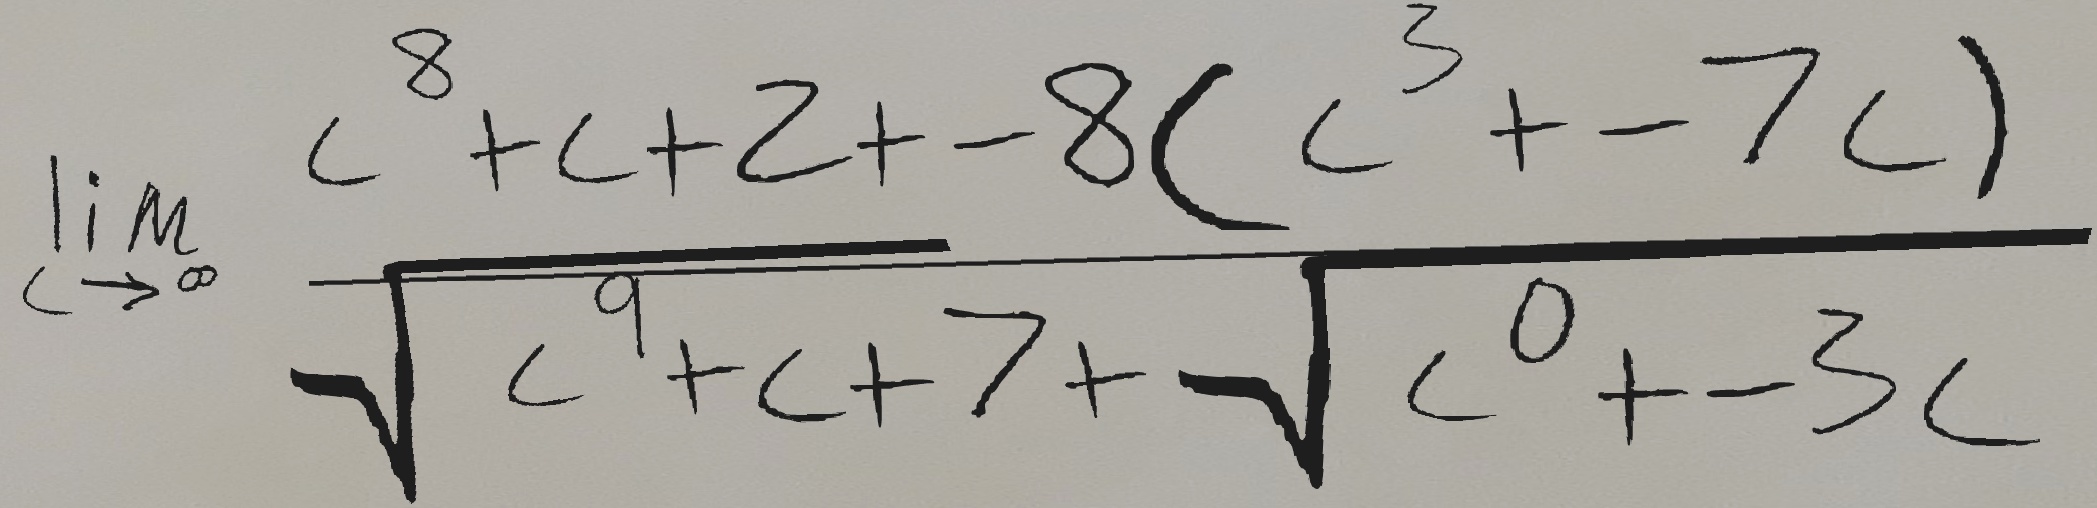 \lim_{c \to \infty} \frac{c^8 + c + 2 + -8(c^3 + -7c)}{\sqrt{c^9 + c + 7} + \sqrt{c^0 + -3c}}